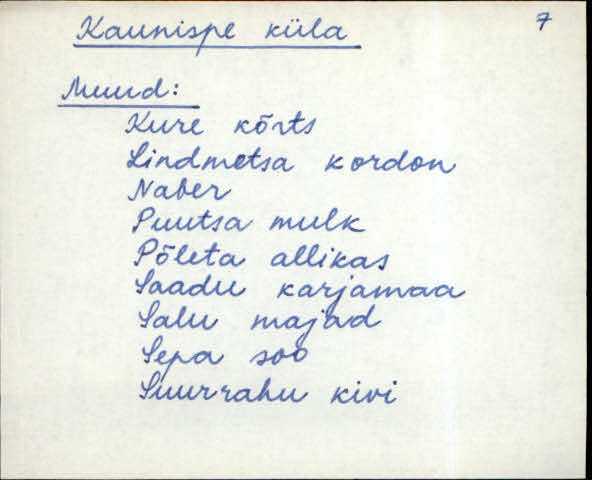 Kaunispe küla
7
Muud:
Kure kõrts
Lindmetsa kordon
Naber
Puutsa mulk
Põleta allikas
Saadu karjamaa
Salu majad
Sepa soo
Suurrahu kivi